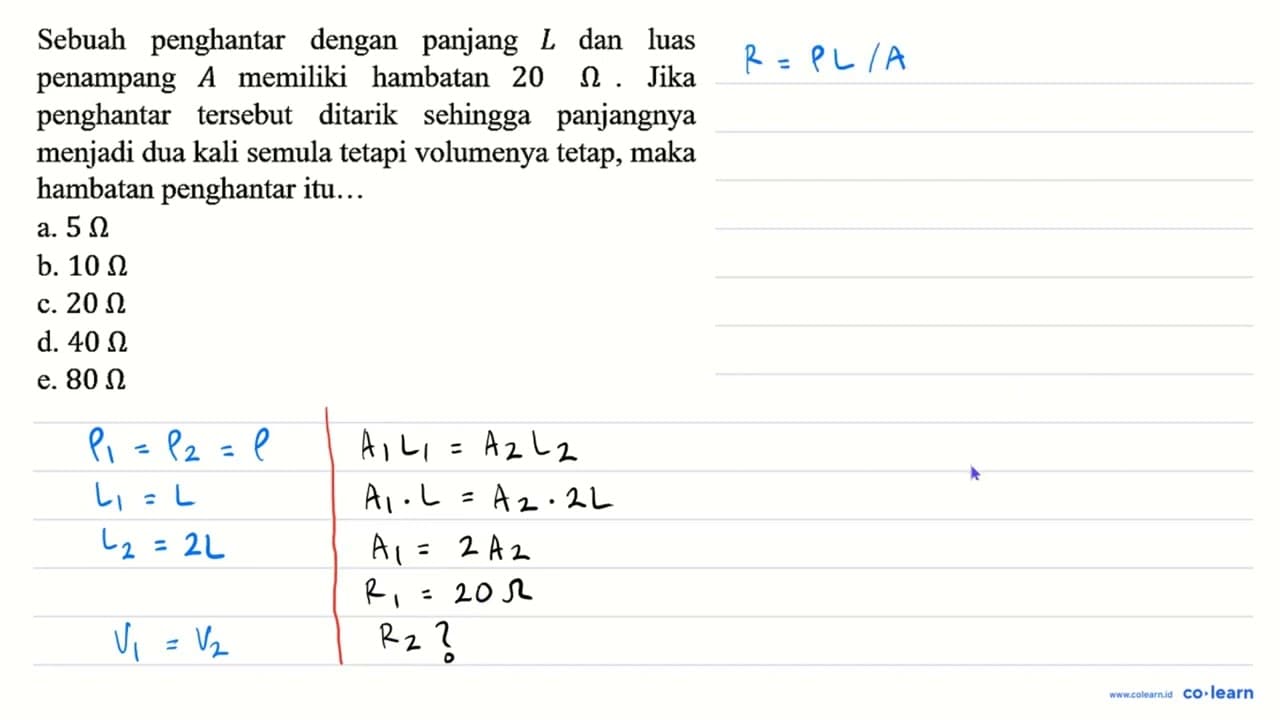 Sebuah penghantar dengan panjang L dan luas
penampang A memiliki hambatan 20 Ω . Jika
penghantar tersebut ditarik sehingga panjangnya
menjadi dua kali semula tetapi volumenya tetap, maka
hambatan penghantar itu…
a. 5 Ω
b. 10 Ω
c. 20 Ω
d. 40 Ω
e. 80 Ω
R = ρL/A
ρ₁ = ρ₂ = ρ
L₁ = L
L₂ = 2L
V₁ = V₂
A₁L₁ = A₂L₂
A₁.L = A₂.2L
A₁ = 2A₂
R₁ = 20Ω
R₂?
www.colearn.id co·learn